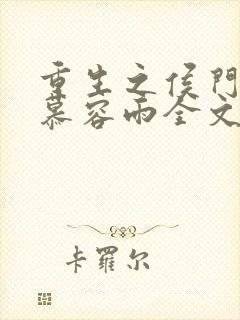 重生之侯门
慕容雨全文
卡罗尔